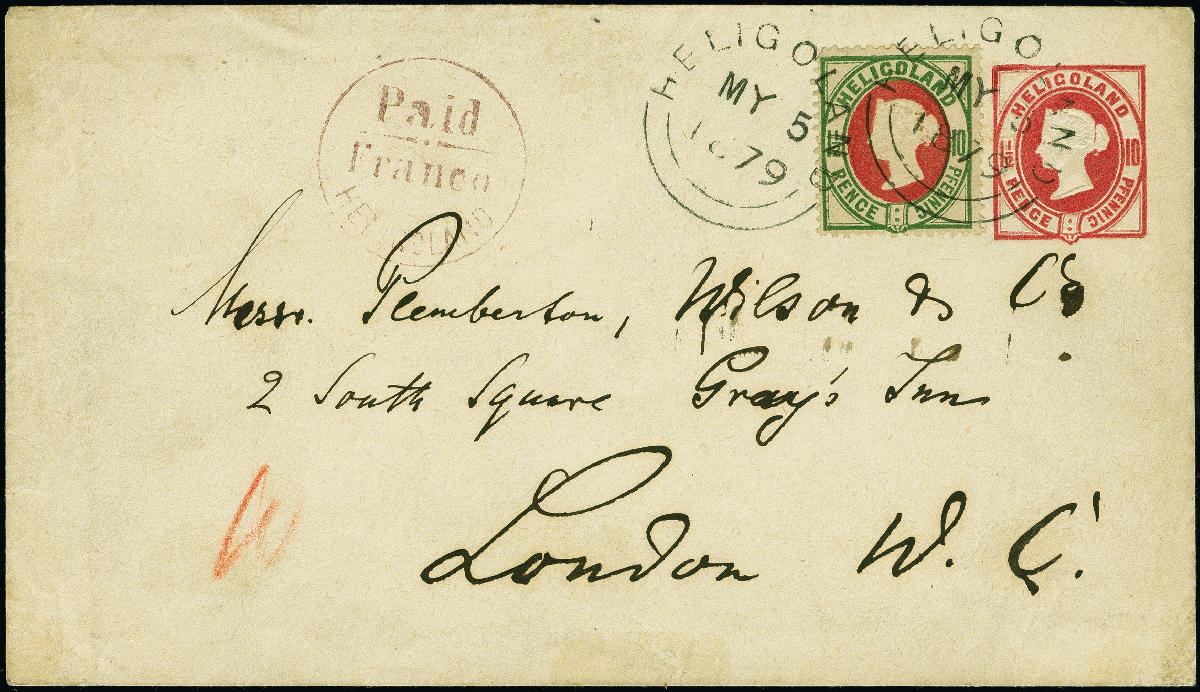 Paid
Franco
HELIGOLAND
HELIGOLAND
MY 5
1879
HELIGOLAND
10
PENCE PFENNIG
HELIGOLAND
MY 5
1879
HELIGOLAND
1½ 10
PENCE PFENNIG
Messrs. Pemberton, Wilson & Co
2 South Square Gray's Inn
London W. C.